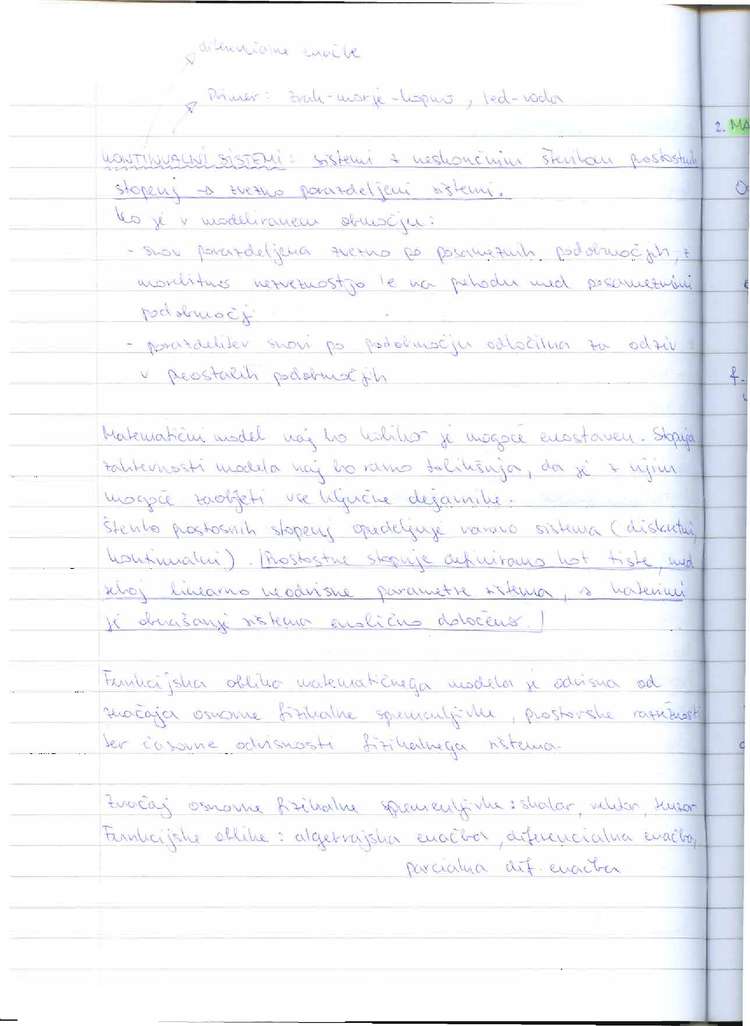 diferencialne enačbe
Primer: zrak-morje-kopno, led-voda
KONTINUALNI SISTEMI: sistemi z neskončnim številom prostostnih
stopenj → zvezno porazdeljeni sistemi.
Ko je v modeliranem območju:
- snov porazdeljena zvezno po posameznih podobmočjih, z
morebitno nezveznostjo le na prehodu med posameznimi
podobmočji
- porazdelitev snovi po podobmočju odločilna za odziv
v preostalih podobmočjih
Matematični model naj bo kolikor je mogoče enostaven. Stopnja
zahtevnosti modela naj bo ravno tolikšnja, da je z njim
mogoče zaobjeti vse ključne dejavnike.
Število prostosnih stopenj opredeljuje naravo sistema (diskretni,
kontinualni). Prostostne stopnje definiramo kot tiste, med
seboj linearno neodvisne parametre sistema, s katerimi
je obnašanje sistema enolično določeno.
Funkcijska oblika matematičnega modela je odvisna od
značaja osnovne fizikalne spremenljivke, prostorske razsežnosti
ter časovne odvisnosti fizikalnega sistema.
Značaj osnovne fizikalne spremenljivke: skalar, vektor, tenzor
Funkcijske oblike: algebrajska enačba, diferencialna enačba,
parcialna dif. enačba
2. MA